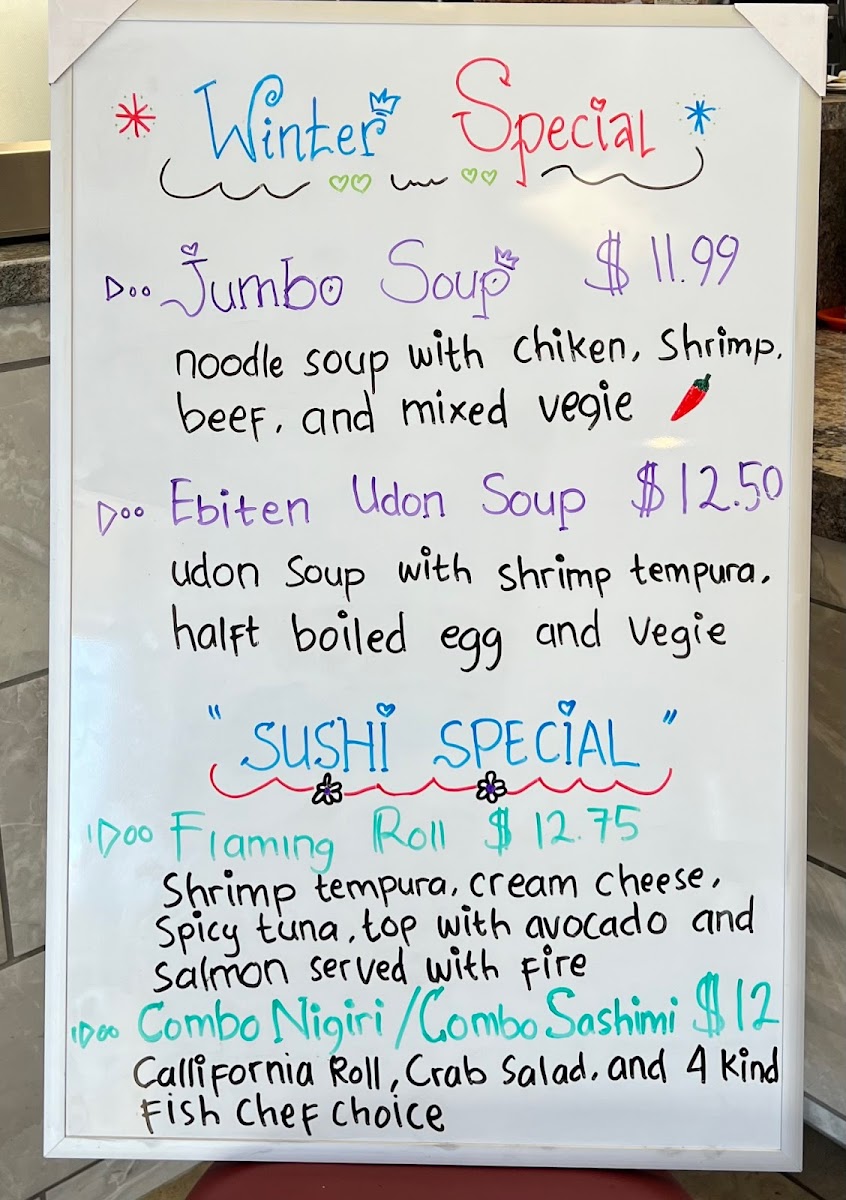 Winter Special
Jumbo Soup $11.99
noodle soup with chiken, shrimp,
beef, and mixed vegie
Ebiten Udon Soup $12.50
udon soup with shrimp tempura,
halft boiled egg and vegie
"SUSHI SPECIAL"
Flaming Roll $12.75
Shrimp tempura, cream cheese,
spicy tuna, top with avocado and
salmon served with fire
Combo Nigiri/Combo Sashimi $12
Callifornia Roll, Crab Salad, and 4 kind
Fish Chef Choice